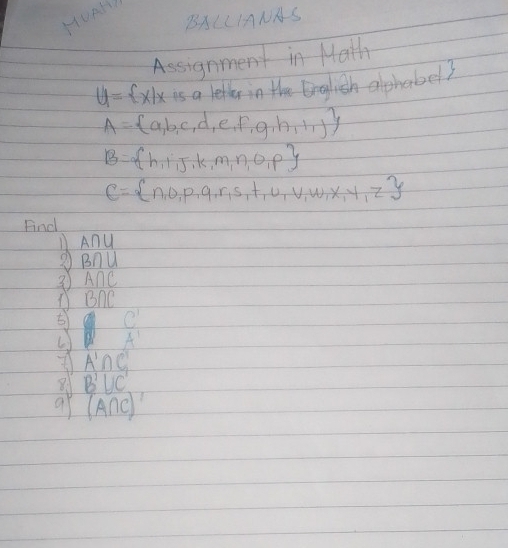 BALLIANAS
Assignment in Math
U = {x|x is a letter in the English alphabet}
A = {a,b,c,d,e,f,g,h,i,j}
B = {h,i,j,k,m,n,o,p}
C = {n,o,p,q,r,s,t,u,v,w,x,y,z}
Find
1) A∩U
2) B∩U
3) A∩C
4) B∩C
5) C'
6) A'
7) A'∩C'
8) B'UC'
9) (A∩C)'